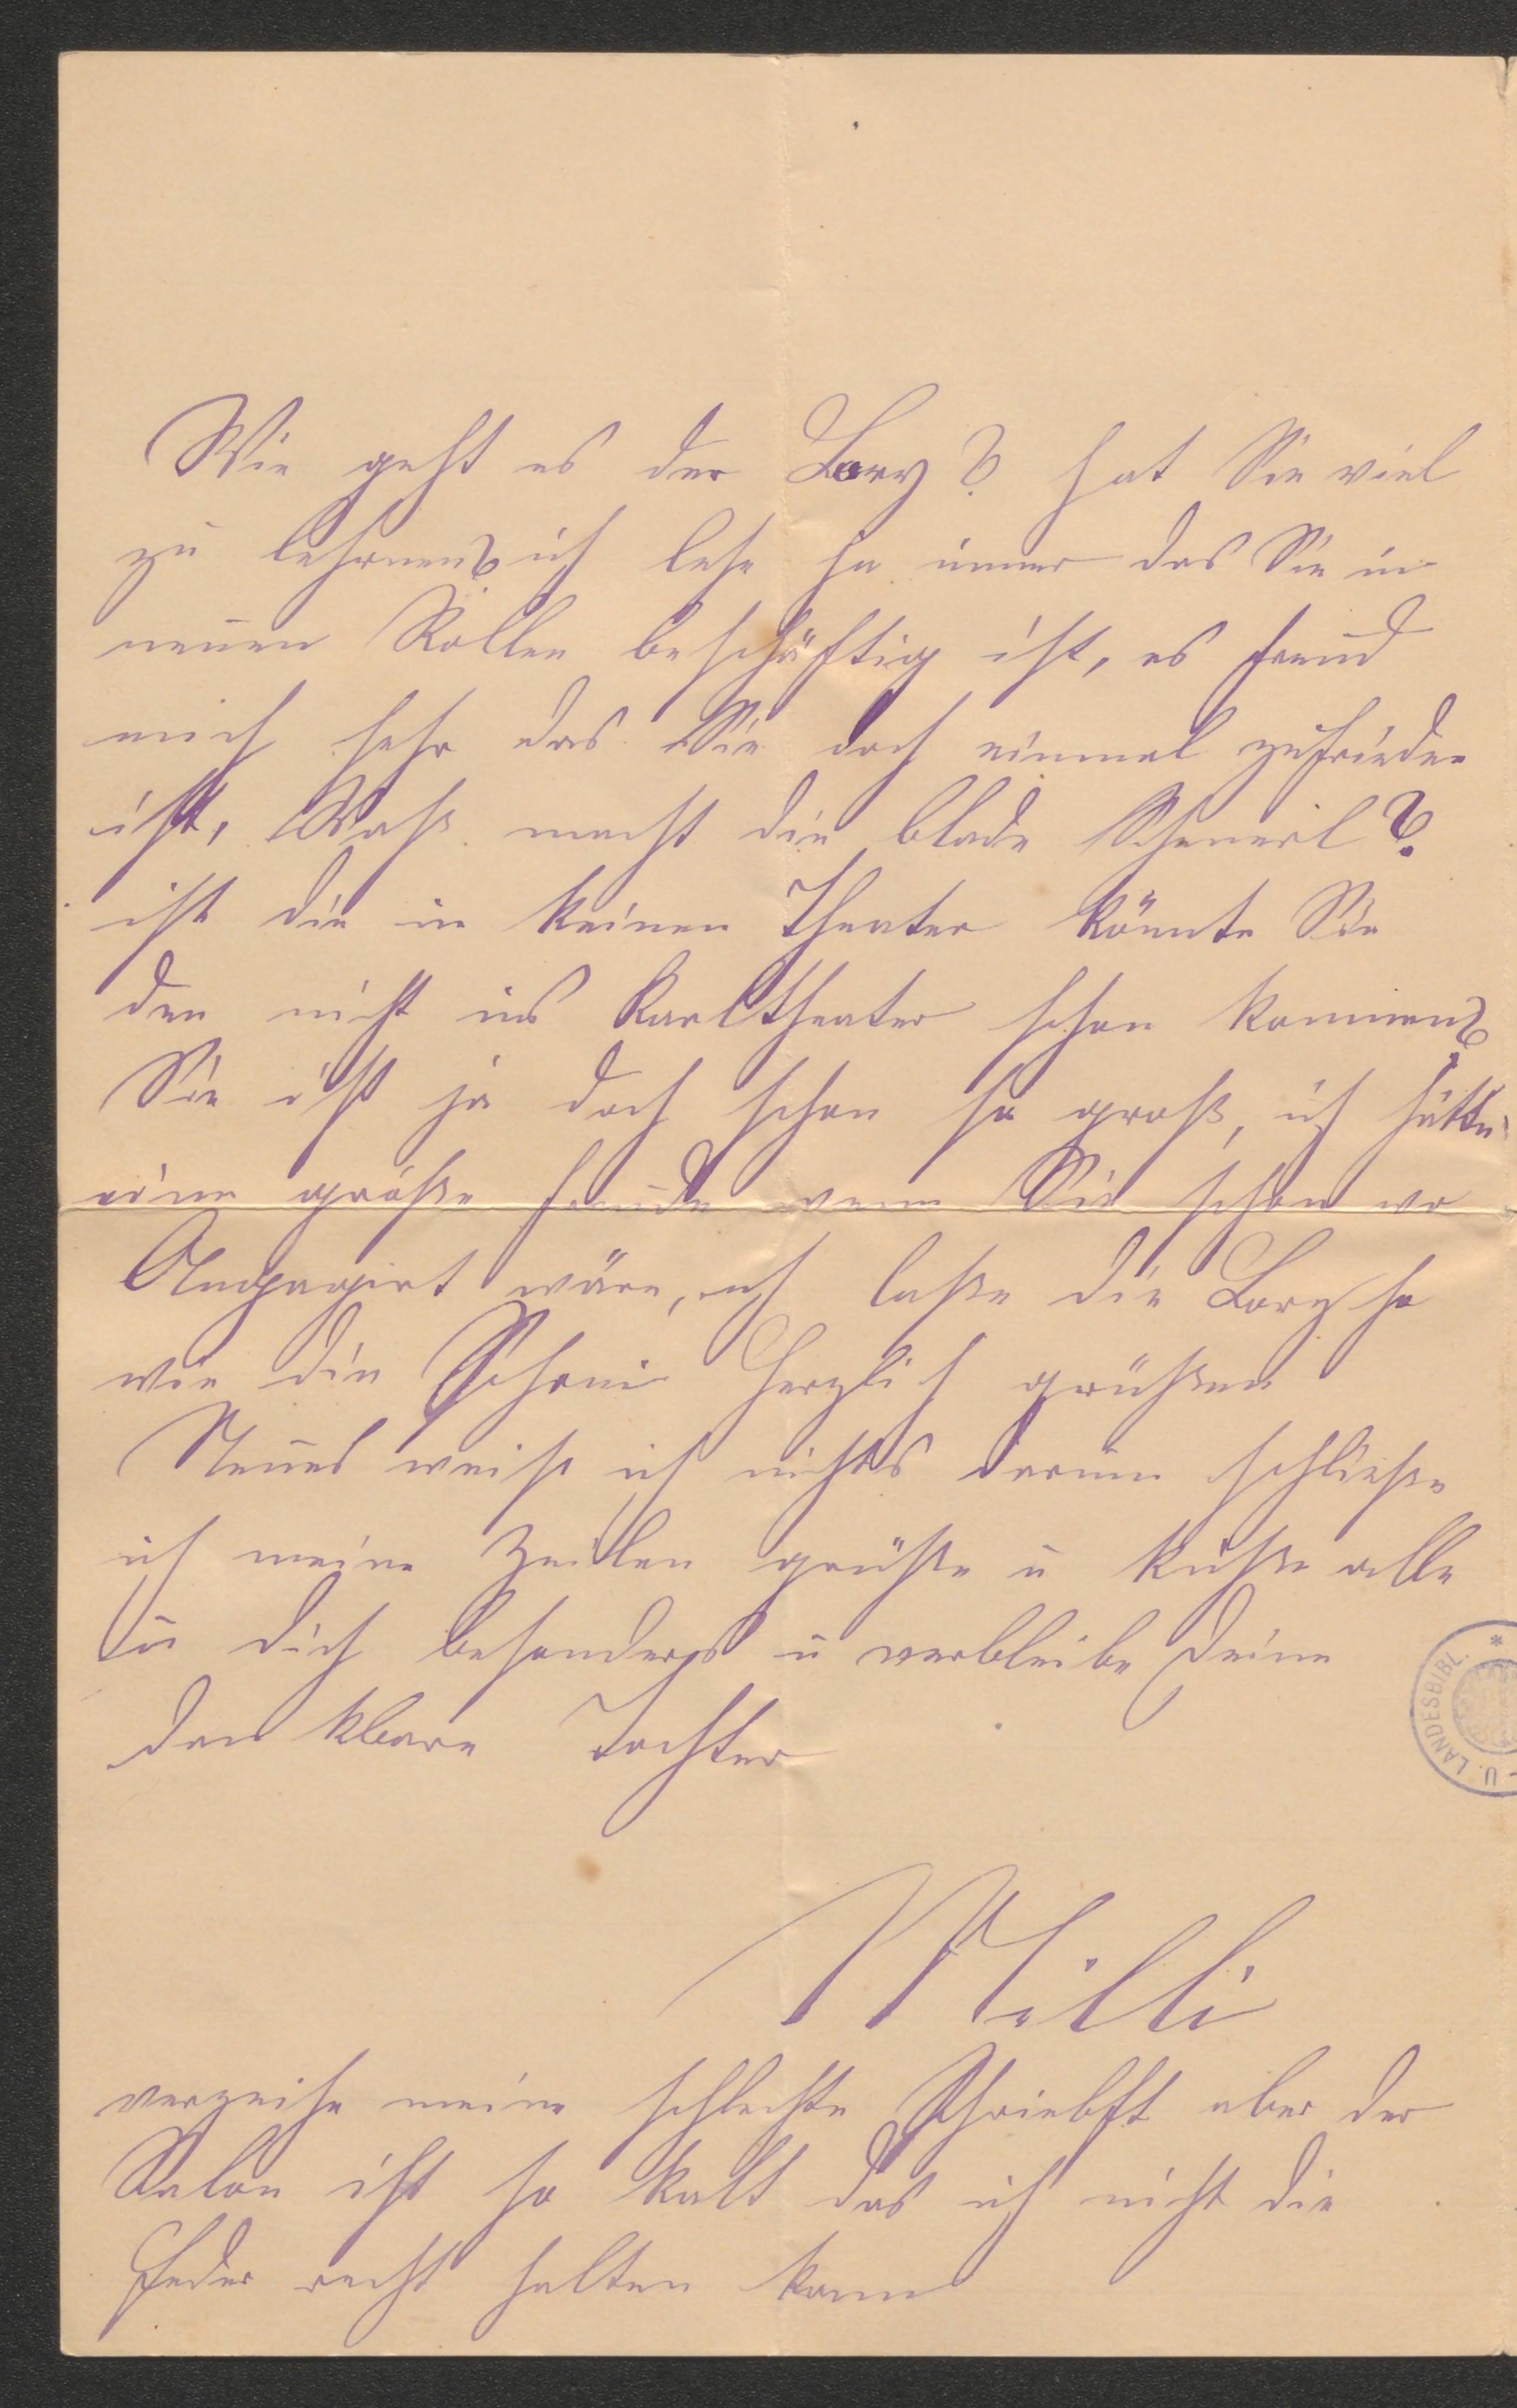 Wie geht es der Lory? hat Sie viel
zu lehrnen? ich lese ja immer das Sie in
neuen Rollen beschäftig ist, es freud
mich sehr das Sie doch einmal zufrieden
ist, Waß macht die blade
ist die in keinen Theater könnte Sie
den nicht ins Karltheater schon kommen?
Sie ist ja doch schon so groß, ich hätte
eine große freude wenn Sie schon wo
Angagirt wäre, ich laße die Lory so
wie die herzlich grüßen
Neues weiß ich nichts darum schließe
ich meine Zeilen grüße u küße alle
u dich besonders u verbleibe deine
dankbare Tochter
Milli
verzeihe meine schlechte Schriebft aber der
Salon ist so kalt das ich nicht die
Feder recht halten kann
U. LANDESBIBL. *